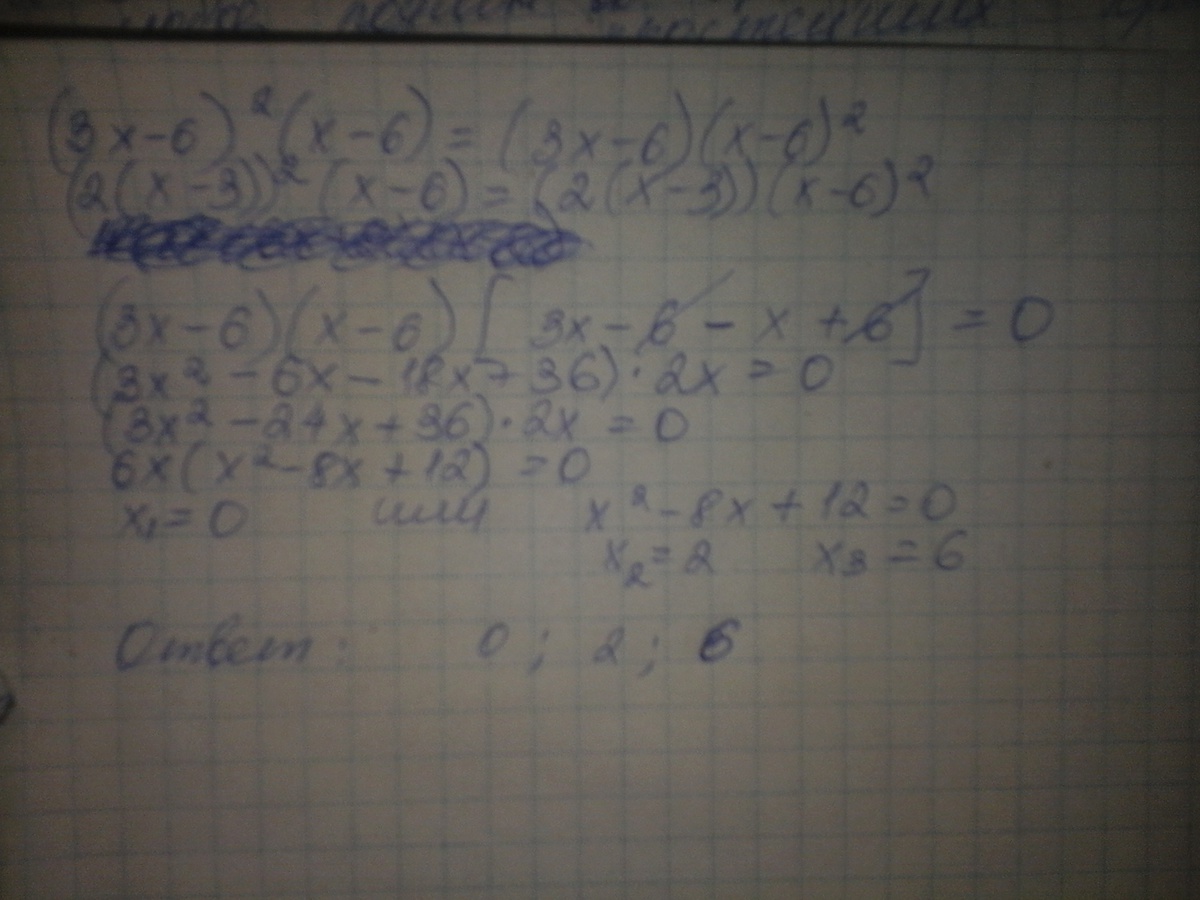 (3x-6)²(x-6)=(3x-6)(x-6)²
(2(x-3))²(x-6)=(2(x-3))(x-6)²
(3x-6)(x-6)[3x-6-x+6]=0
(3x²-6x-18x+36)·2x=0
(3x²-24x+36)·2x=0
6x(x²-8x+12)=0
x₁=0 или x²-8x+12=0
x₂=2 x₃=6
Ответ: 0; 2; 6